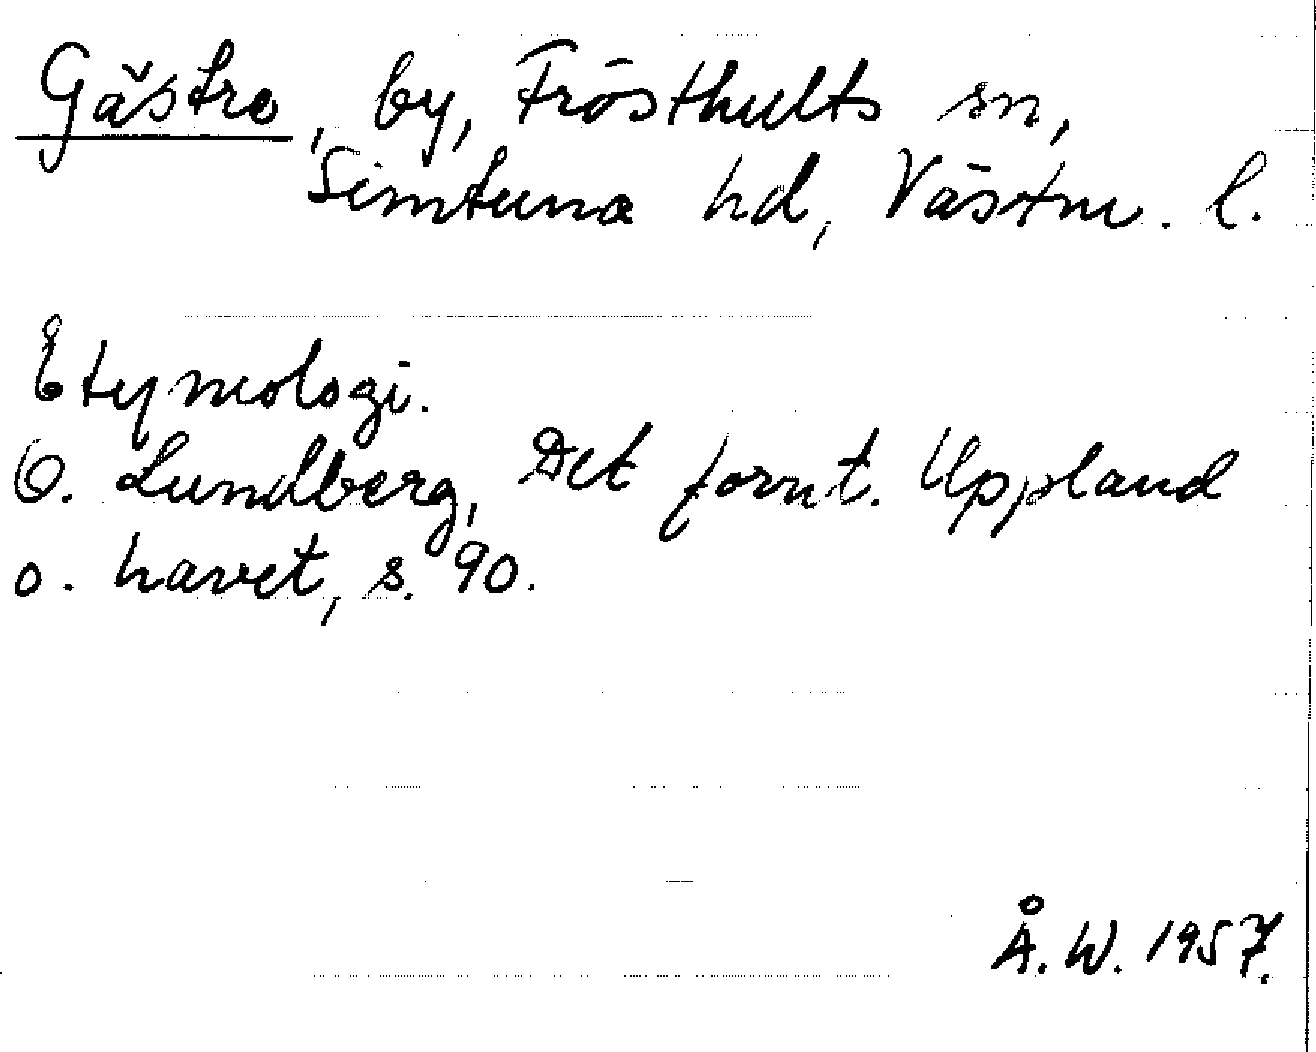 Gästre, by, Frösthults sn,
Simtuna hd, Västm. l.
Etymologi.
O. Lundberg, Det fornt. Uppland
o. havet, s. 90.
Å. W. 1957.